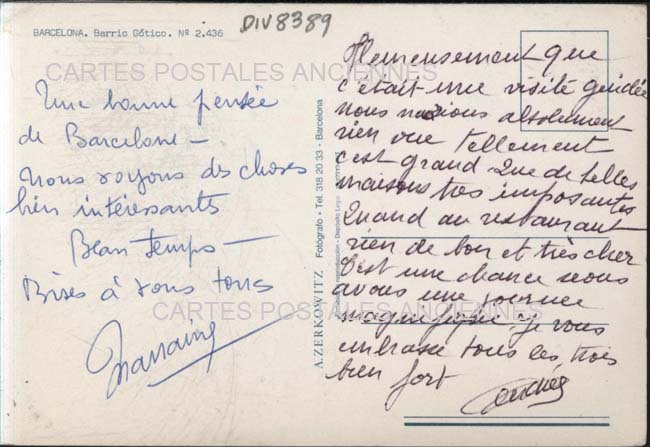 DIV8389
BARCELONA. Barrio Gótico. Nº 2.436
CARTES POSTALES ANCIENNES
Une bonne pensée
de Barcelone -
Nous voyons des choses
bien intéressantes
Beau temps -
Bises à vous tous
Marraine
A. ZERKOWITZ Fotógrafo • Tel. 318 20 33 - Barcelona
Heureusement que
c'était une visite guidée
nous n'avions absolument
rien vue tellement
c'est grand Que de belles
maisons très imposantes
Quand au restaurant
rien de bon et très cher
C'est une chance nous
avons une journée
magnifique. Je vous
embrasse tous les trois
bien fort
CARTES POSTALES ANCIENNES